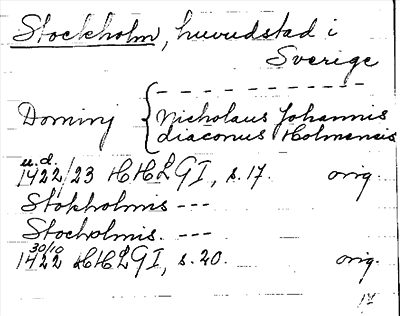 Stockholm, huvudstad i
Sverige
- - - - - - - - - - - -
Dominj { Nicholaus Johannis
diaconus Holmensis
u.d.
1422/23 HHLGI, s. 17. orig.
Stokholmis ---
Stocholmis. ---
30/10
1422 HHLGI, s. 20. orig.